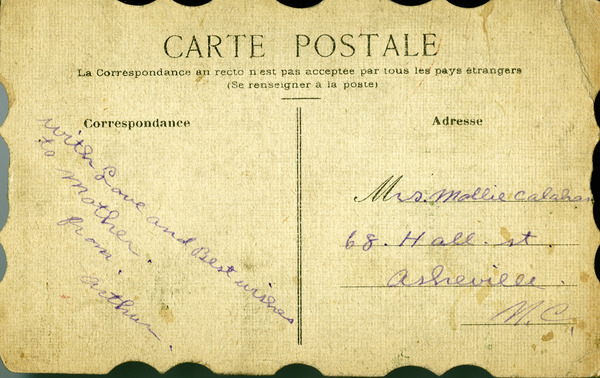 CARTE POSTALE
La Correspondance an recto n est pas acceptée par tous les pays étrangers
(Se renseigner à la poste)
Correspondance
Adresse
with Love and Best wishes
to Mother.
from
Arthur
Mrs. Mollie Calahan
68. Hall. st.
Asheville
N.C.